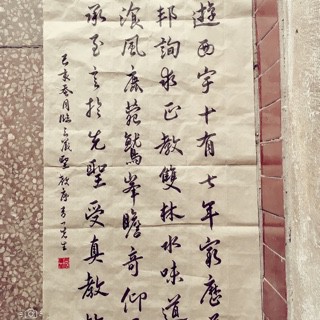 遊西宇十有七年窮歷道
邦詢求正教雙林水味道
飡風鹿菀鷲峯瞻奇仰異
承至言於先聖受真教於
己亥春月臨之聖教序